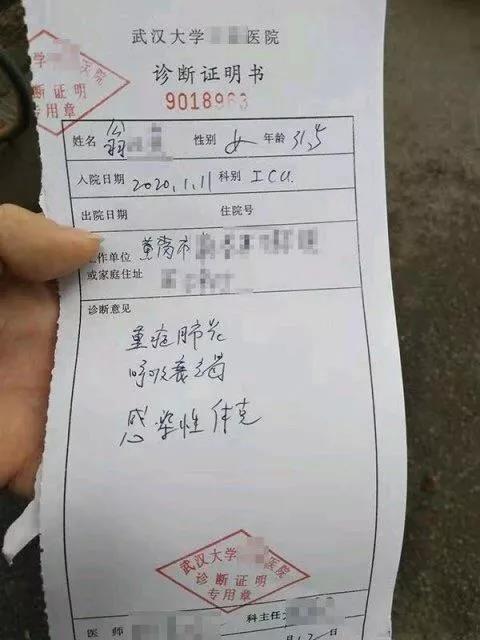 武汉大学 医院
诊断证明书
9018963
医院
诊断证明
专用章
姓名 翁 性别 女 年龄 31岁
入院日期 2020.1.11 科别 ICU
出院日期 住院号
工作单位 黄冈市
或家庭住址
诊断意见
重症肺炎
呼吸衰竭
感染性休克
武汉大学 医院
诊断证明
专用章
医师 科主任